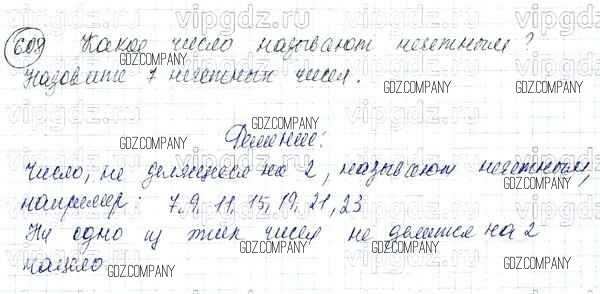 609 Какое число называют нечетным?
Назовите 7 нечетных чисел.
Решение:
Число, не делящееся на 2, называют нечетным,
например: 7, 9, 11, 15, 19, 21, 23
Ни одно из этих чисел не делится на 2
нацело
GDZ.COMPANY
vipgdz.ru